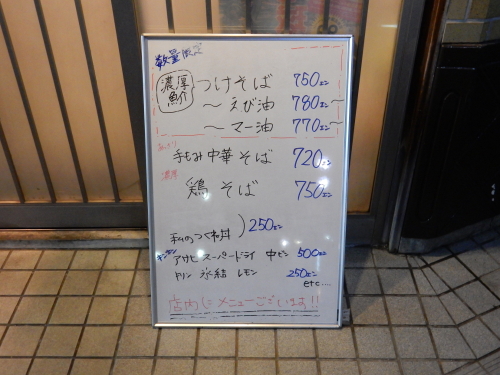 数量限定
濃厚魚介 つけそば 750エン
〜えび油 780エン〜
〜マー油 770エン〜
あっさり
手もみ中華そば 720エン
濃厚
鶏そば 750エン
私のつくね丼 ) 250エン
キンキン アサヒスーパードライ 中ビン 500エン
キリン 氷結 レモン 250エン
etc....
店内にメニューございます!!